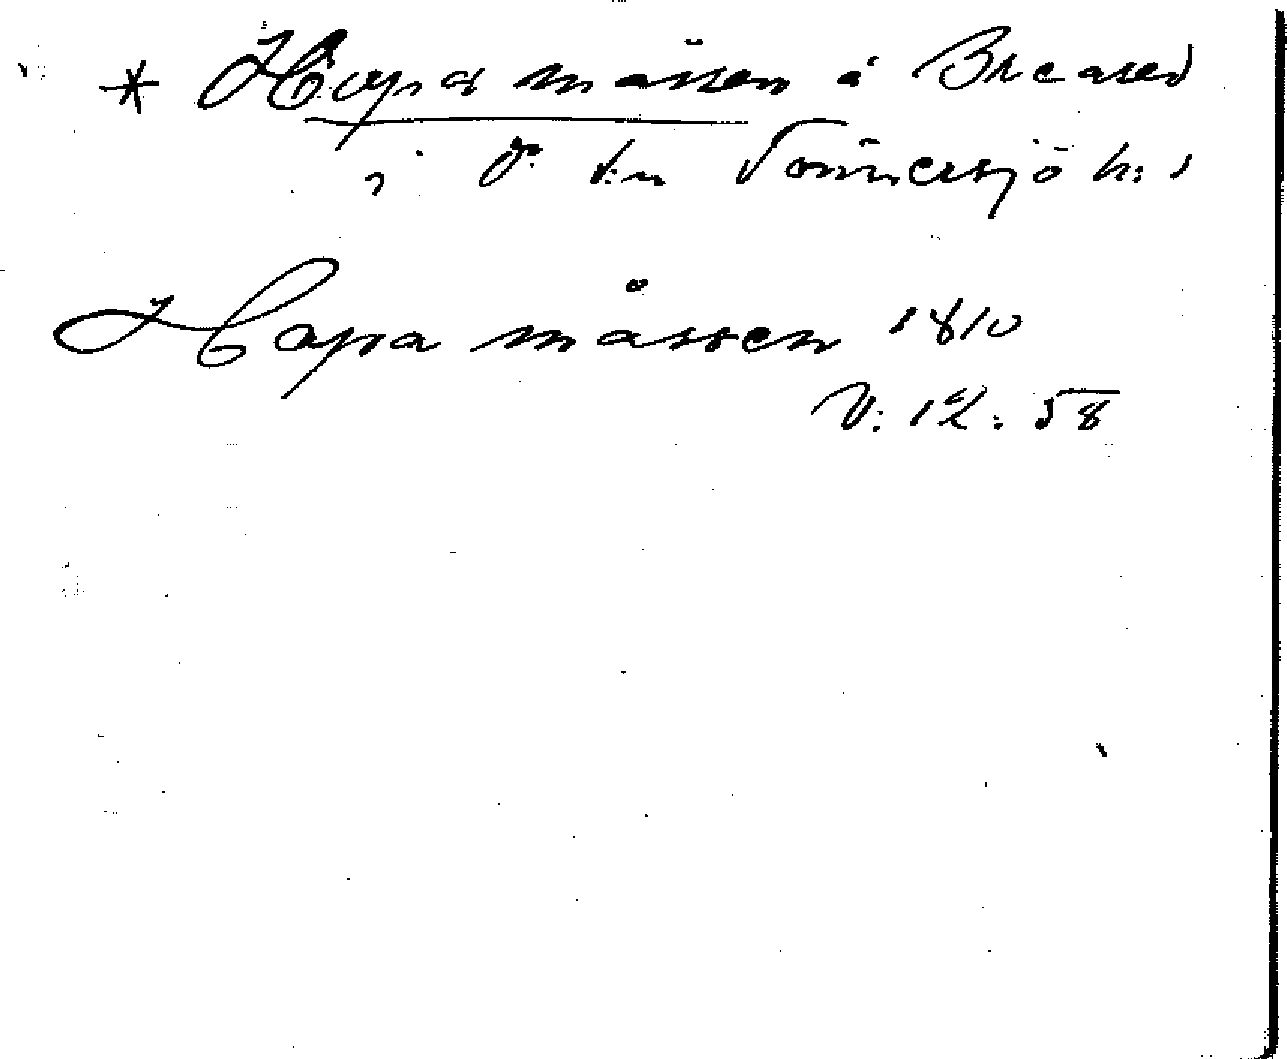 * Hapa måssen å Breared
i d: s:n Tönnersjö h:d
Hapa måssen 1810
V: 12: 58